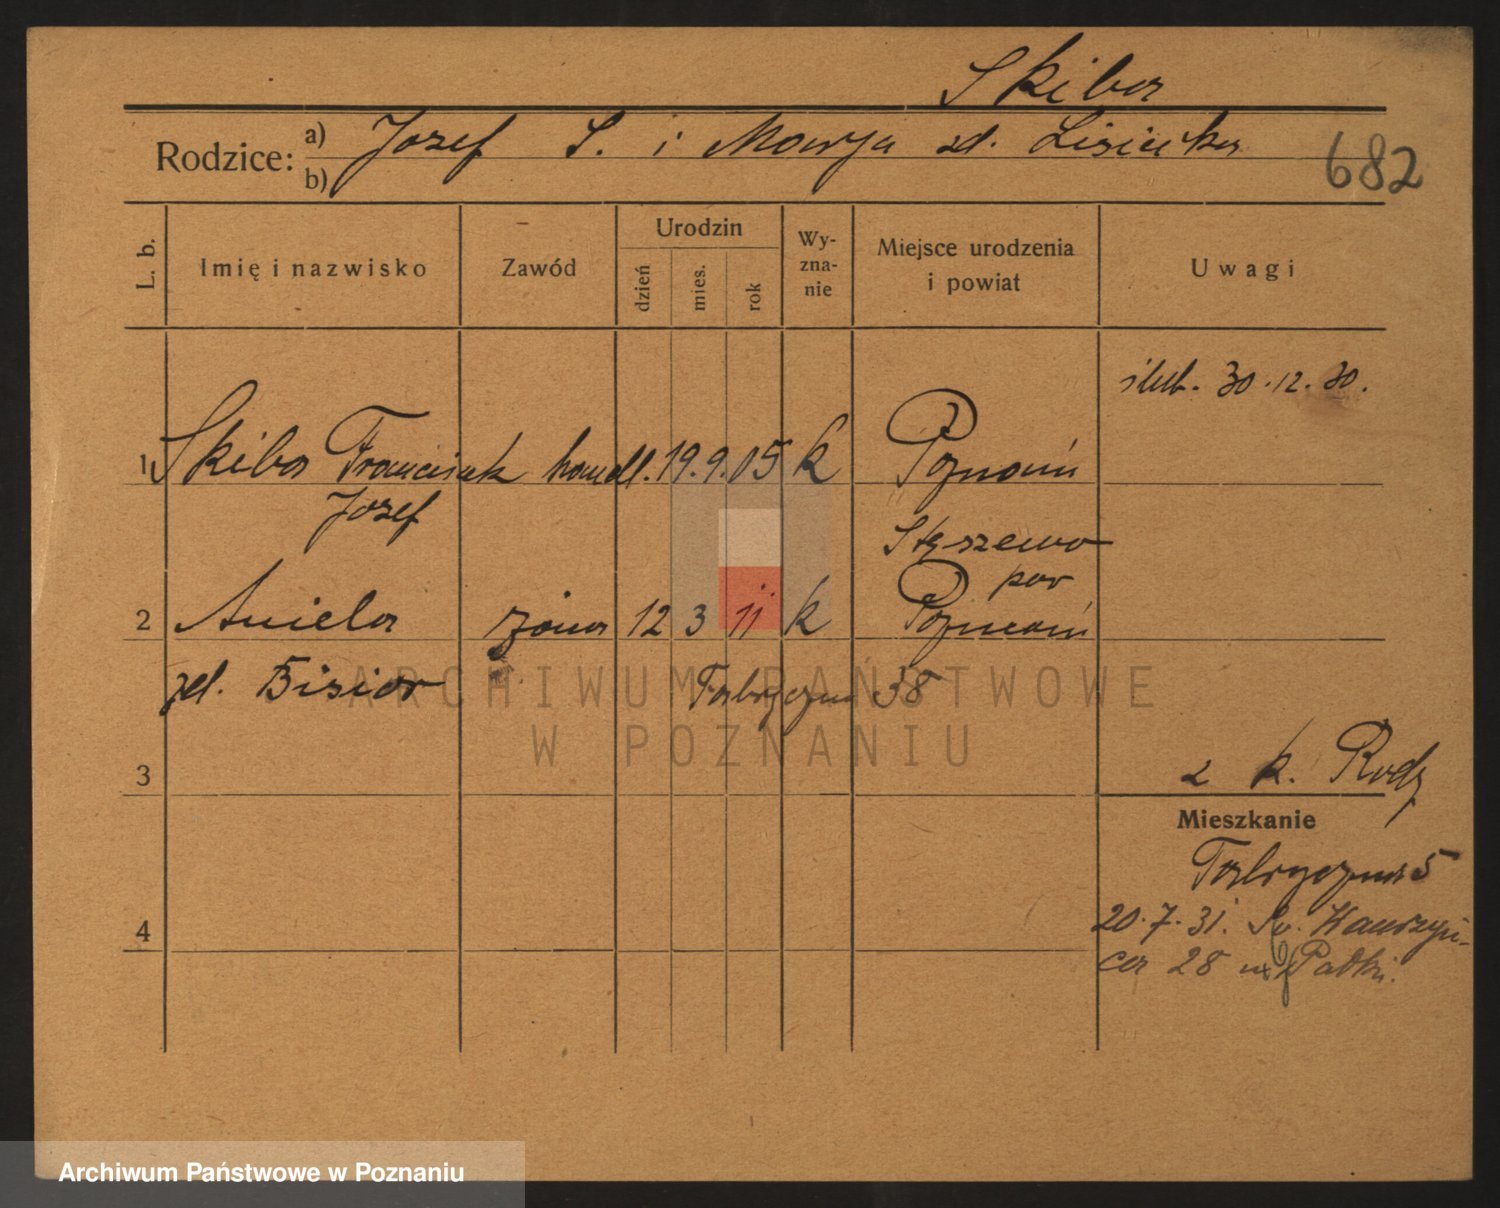 Skiba
Rodzice: a) Jozef S. i Marya zd. Lisiecka
b)
682
L. b. Imię i nazwisko Zawód Urodzin dzień mies. rok Wy-zna-nie Miejsce urodzenia i powiat Uwagi
ślub. 30.12.30.
1 Skiba Franciszek handl. 19.9.05 k Poznań
Jozef
Stęszewo
pow
2 Aniela żona 12 3 11 k Poznań
zd. Bisior Fabryczna 38
ARCHIWUM PAŃSTWOWE
W POZNANIU
3 2 k. Rodz
Mieszkanie
Fabryczna 5
20.7.31. Św. Wawrzyń-
4
ca 28 Patki.
Archiwum Państwowe w Poznaniu